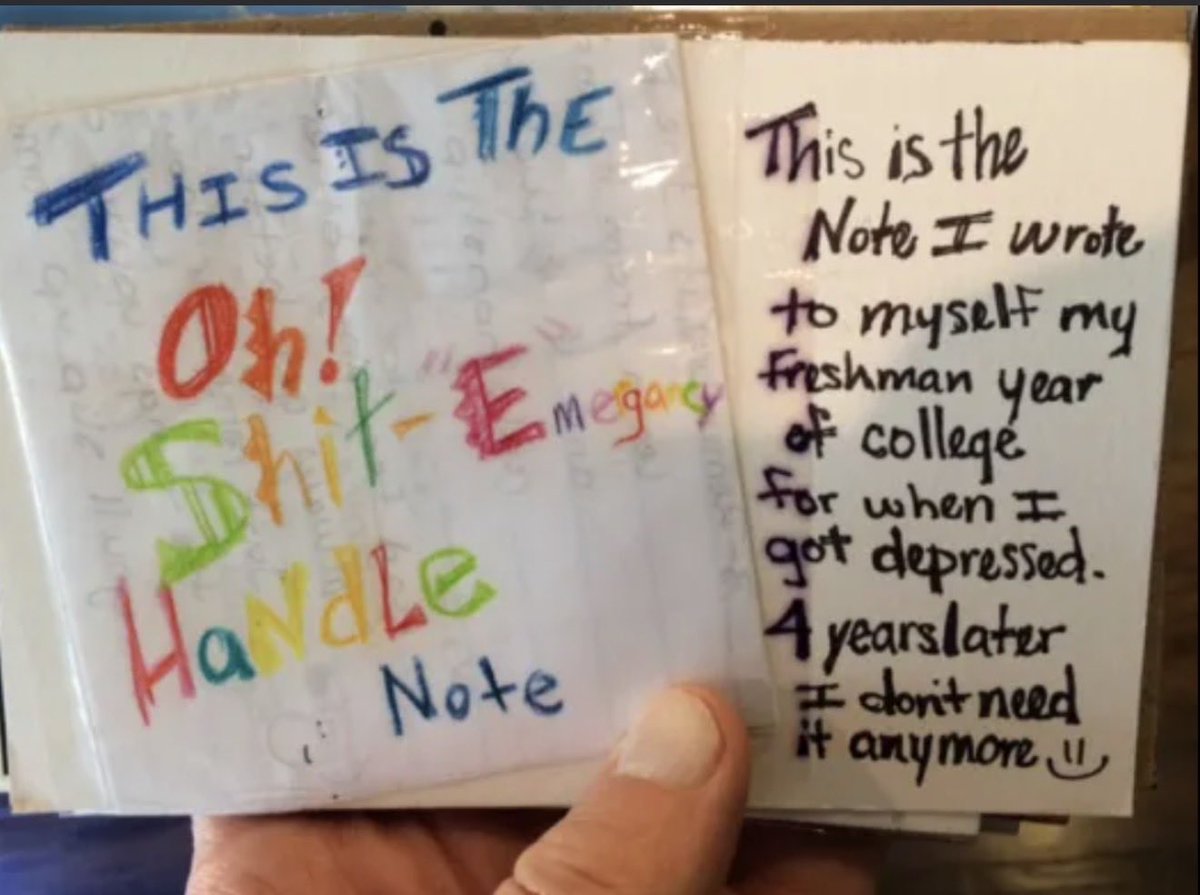 THIS IS THE
Oh!
Shit- "Emergancy"
HaNdLe
Note
This is the
Note I wrote
to myself my
freshman year
of college
for when I
got depressed.
4 years later
I don't need
it anymore